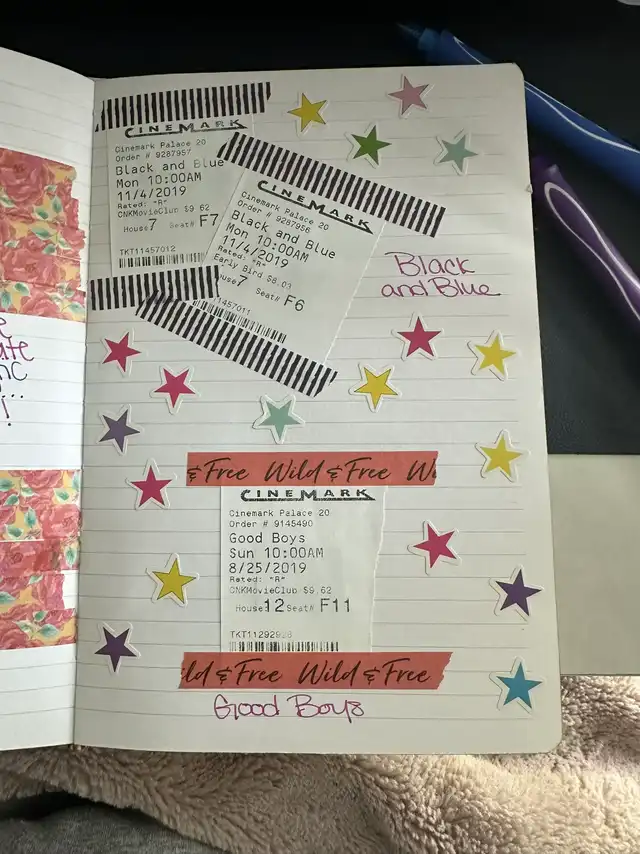 CINEMARK
Cinemark Palace 20
Order # 9287957
Black and Blue
Mon 10:00AM
11/4/2019
Rated: "R"
CNKMovieClub $9.62
House 7 Seat# F7
TKT11457012
CINEMARK
Cinemark Palace 20
Order # 9287956
Black and Blue
Mon 10:00AM
11/4/2019
Rated: "R"
Early Bird $8.03
House 7 Seat# F6
11457011
Black
and Blue
& Free Wild & Free
CINEMARK
Cinemark Palace 20
Order # 9145490
Good Boys
Sun 10:00AM
8/25/2019
Rated: "R"
CNKMovieClub $9.62
House: 12 Seat# F11
ild & Free Wild & Free
Good Boys